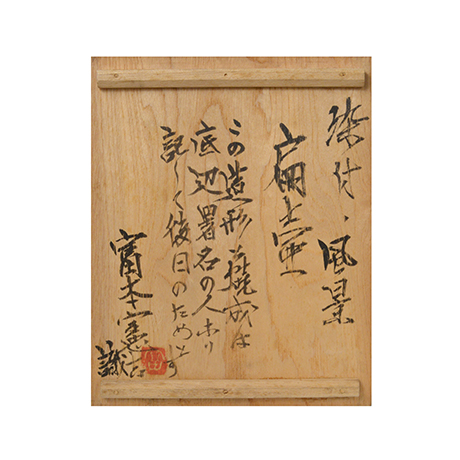 染付、風景
扁壺
この造形並焼成は
底辺署名の人あり
記して後日のためとす
富本憲吉
識